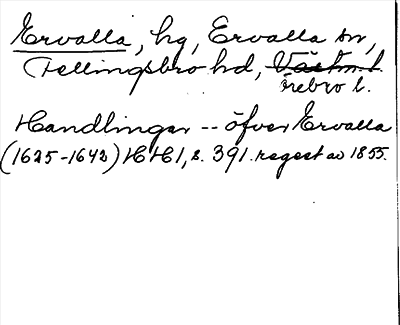 Ervalla, hg, Ervalla sn,
Fellingsbro hd, Västm. l.
Örebro l.
Handlingar -- öfver Ervalla
(1625-1642) HH1, s. 391. regest av 1855.